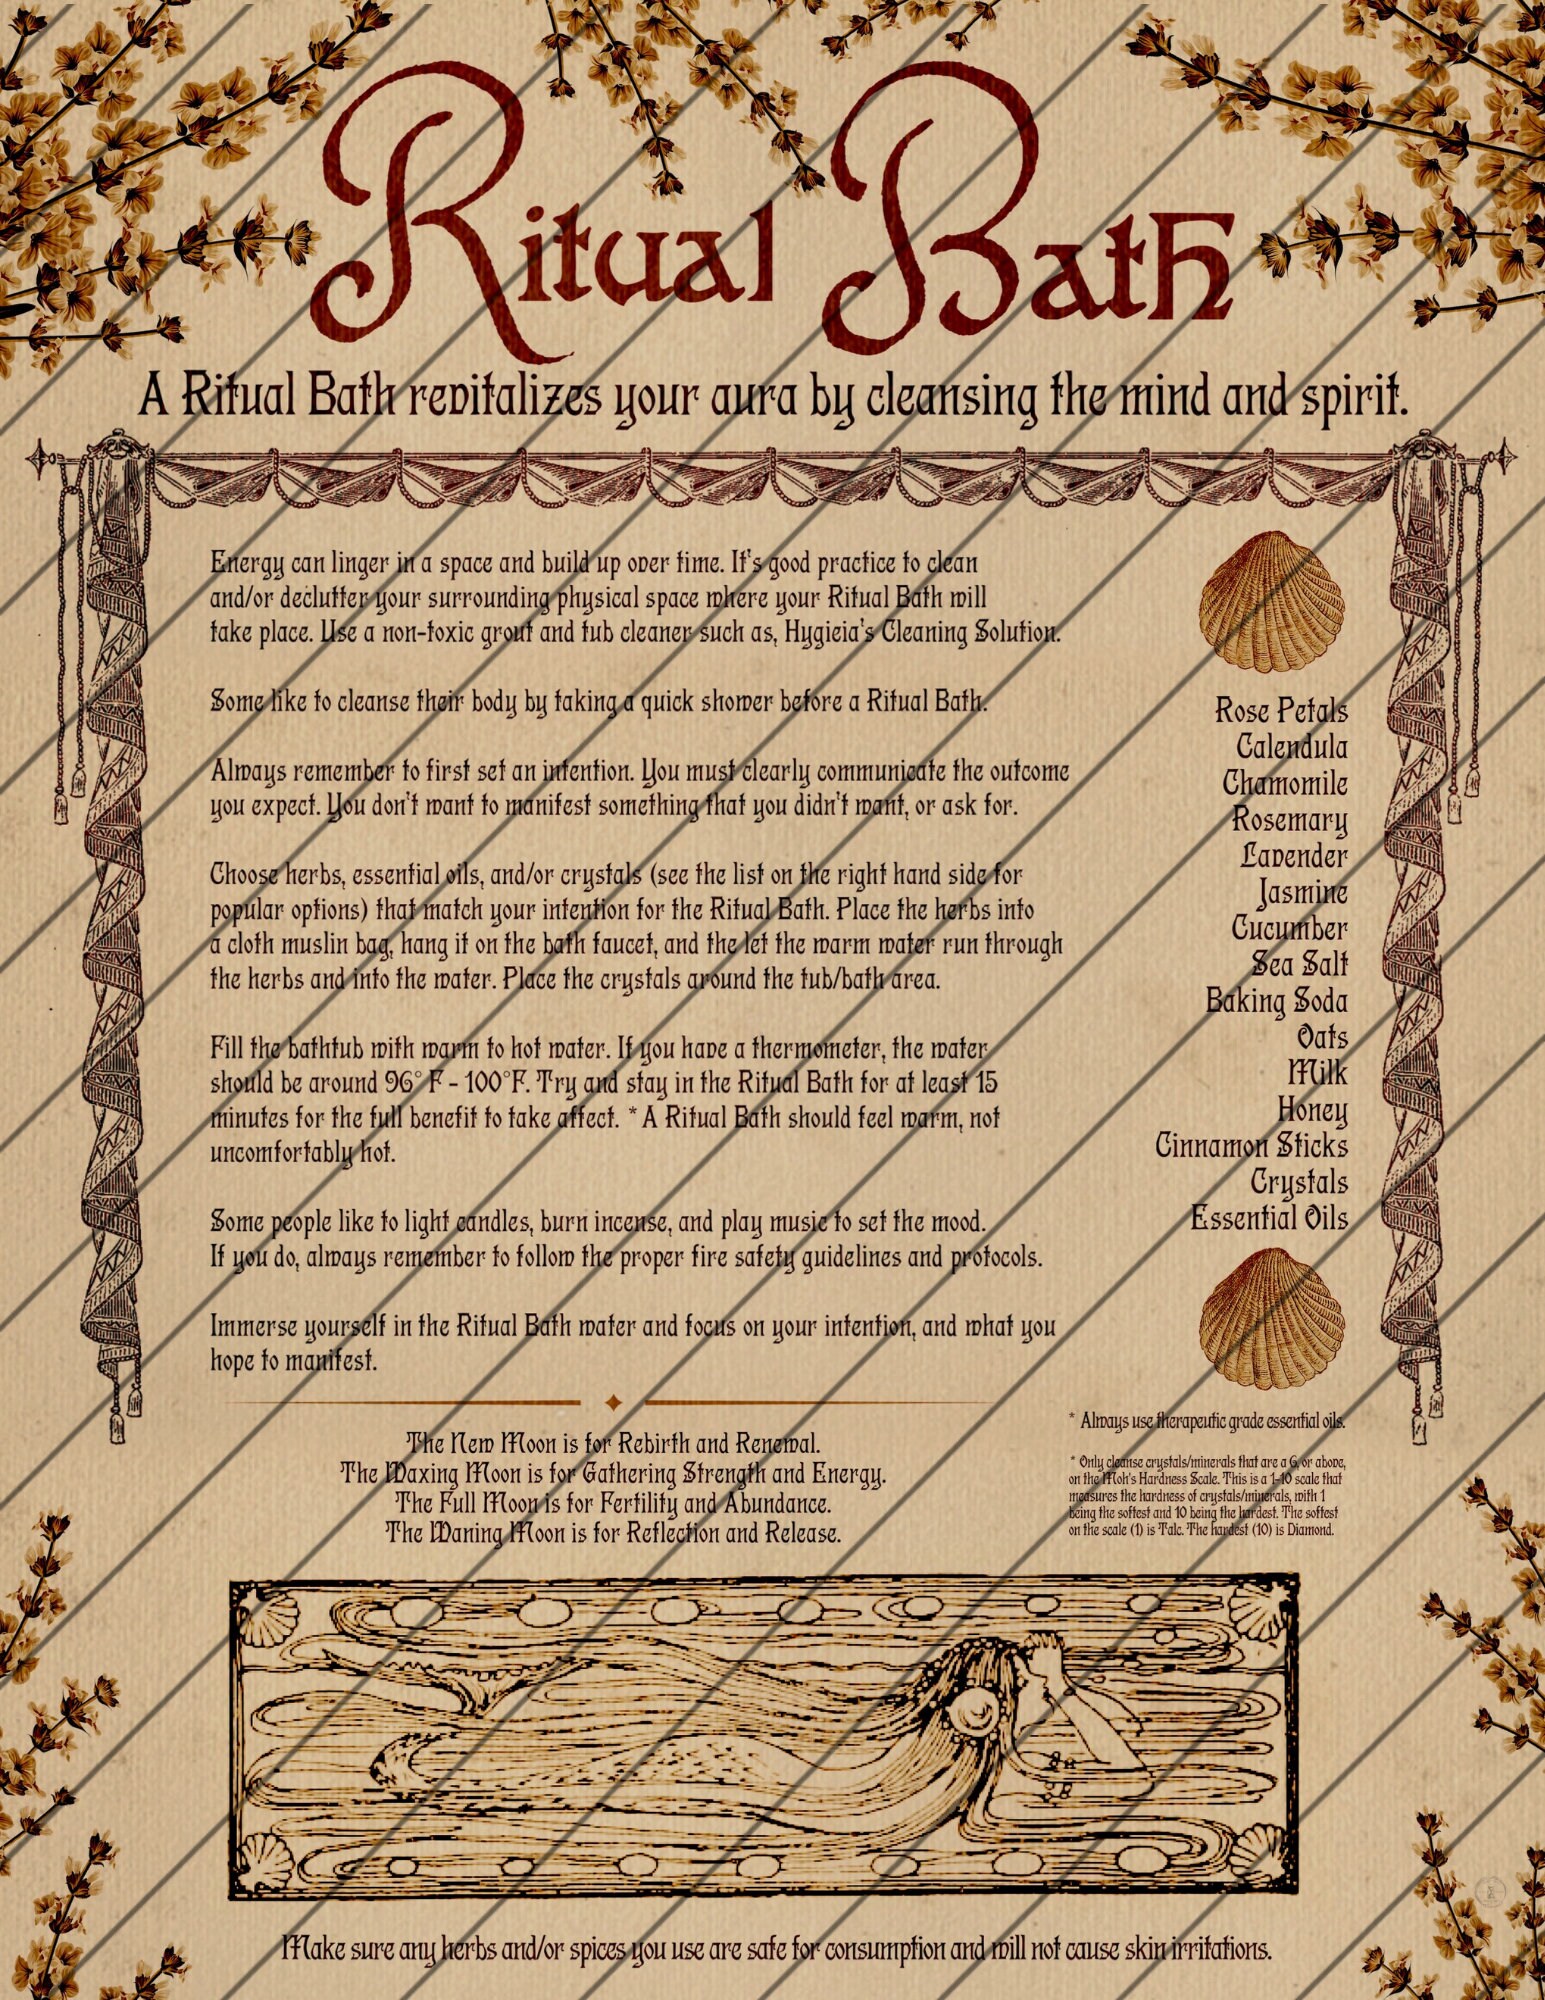 Ritual Bath
A Ritual Bath revitalizes your aura by cleansing the mind and spirit.
Energy can linger in a space and build up over time. It's good practice to clean
and/or declutter your surrounding physical space where your Ritual Bath will
take place. Use a non-toxic grout and tub cleaner such as, Hygieia's Cleaning Solution.
Some like to cleanse their body by taking a quick shower before a Ritual Bath.
Always remember to first set an intention. You must clearly communicate the outcome
you expect. You don't want to manifest something that you didn't want, or ask for.
Choose herbs, essential oils, and/or crystals (see the list on the right hand side for
popular options) that match your intention for the Ritual Bath. Place the herbs into
a cloth muslin bag, hang it on the bath faucet, and the let the warm water run through
the herbs and into the water. Place the crystals around the tub/bath area.
Fill the bathtub with warm to hot water. If you have a thermometer, the water
should be around 96° F - 100°F. Try and stay in the Ritual Bath for at least 15
minutes for the full benefit to take affect. *A Ritual Bath should feel warm, not
uncomfortably hot.
Some people like to light candles, burn incense, and play music to set the mood.
If you do, always remember to follow the proper fire safety guidelines and protocols.
Immerse yourself in the Ritual Bath water and focus on your intention, and what you
hope to manifest.
Rose Petals
Calendula
Chamomile
Rosemary
Lavender
Jasmine
Cucumber
Sea Salt
Baking Soda
Oats
Milk
Honey
Cinnamon Sticks
Crystals
Essential Oils
The New Moon is for Rebirth and Renewal.
The Waxing Moon is for Gathering Strength and Energy.
The Full Moon is for Fertility and Abundance.
The Waning Moon is for Reflection and Release.
* Always use therapeutic grade essential oils.
* Only cleanse crystals/minerals that are a 6, or above,
on the Moh's Hardness Scale. This is a 1-10 scale that
measures the hardness of crystals/minerals, with 1
being the softest and 10 being the hardest. The softest
on the scale (1) is Talc. The hardest (10) is Diamond.
Make sure any herbs and/or spices you use are safe for consumption and will not cause skin irritations.